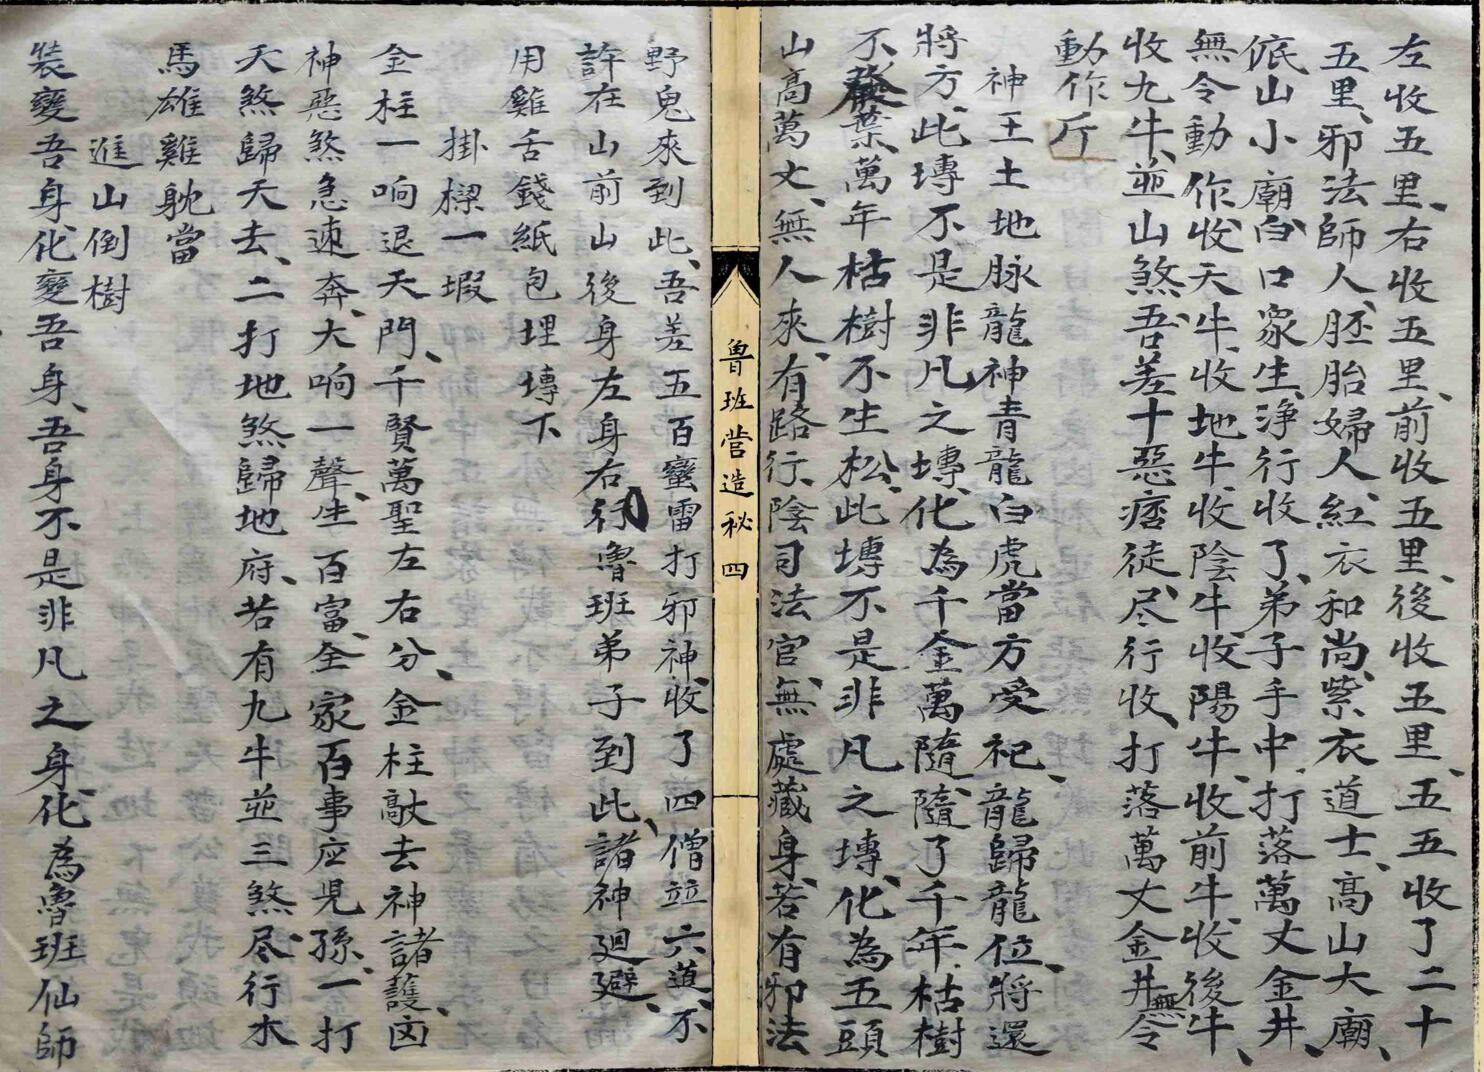 左收五里、右收五里、前收五里、後收五里、五五收了二十
五里、邪法師人、胚胎婦人、紅衣和尚、紫衣道士、高山大廟、
底山小廟、白口衆生、浄行收了、弟子手中、打落萬丈金井、
無令動作、收天牛、收地牛、收陰牛、收陽牛、收前牛、收後牛、
收九牛、並山煞、吾差十惡痞徒、尽行收、打落萬丈金井、無令
動作斤
神王土地脉龍神青龍白虎當方受祀、龍歸龍位、將還
將方、此塼不是非凡之塼、化為千金萬隨、隨了千年枯樹
不發葉、萬年枯樹不生松、此塼不是非凡之塼、化為五頭
山高萬丈、無人來、有路行、陰司法官、無處藏身、若有邪法
魯班营造秘四
野鬼來到此、吾差五百蠻雷打邪神、收了四僧並六道、不
許在山前山後身左身右行、魯班弟子到此、諸神廻避、
用雞舌錢紙包埋塼下
掛樑一塅
金柱一响退天門、千賢萬聖左右分、金柱敲去神諸護、凶
神惡煞急速奔、大响一聲、生百富、全家百事应児孫、一打
天煞歸天去、二打地煞歸地府、若有九牛並三煞、尽行木
馬雄雞躭當
進山倒樹
裝變吾身、化變吾身、吾身不是非凡之身、化為魯班仙師